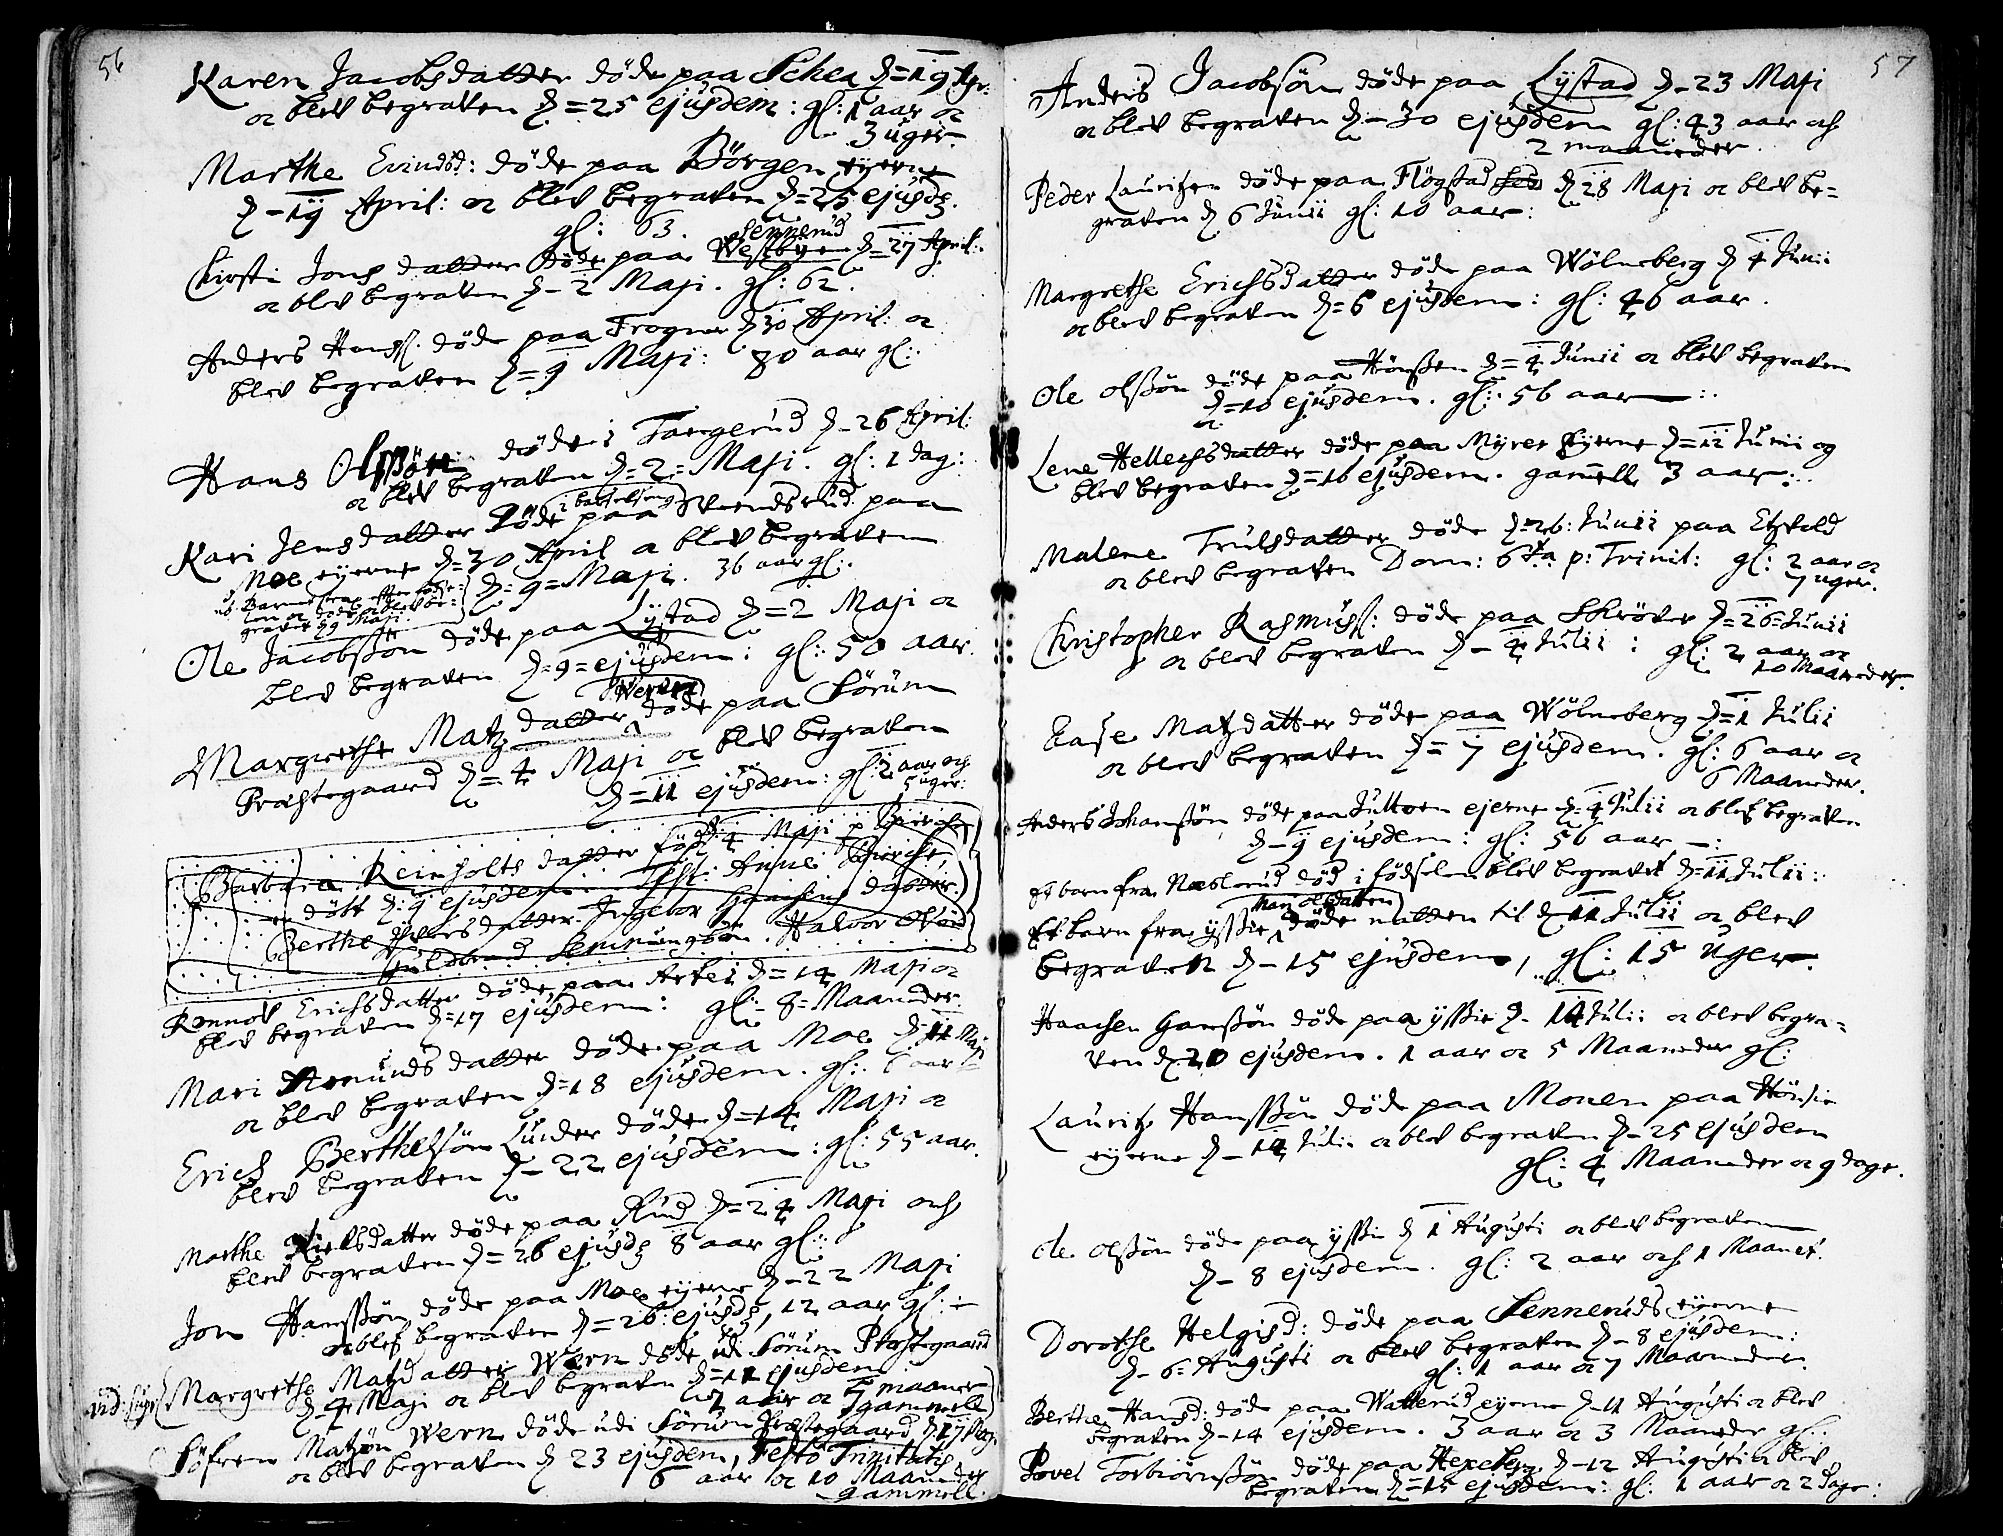 56
Karen Jacobsdatter døde paa Schea d=19 Apr:
oc blev begraven d=25 ejusdem: gl: 1 aar oc
3 uger.
Marthe Evindsd: døde paa Börgen eyerne
d-19 April: oc blev begraven d=25 ejusd.
gl: 63.
Sennerud
Kirsti Jonsdatter døde paa Westbye d=27 April:
oc blev begraven d-2 Maji. gl: 62.
Anders Hanss. døde paa Frogner d 30 April: oc
blev begraven d=9 Maji: 80 aar gl:
Hans Olssøn døde i Targerud d-26 April:
oc blev begraven d=2=Maji. gl: 1 dag:
i barselseng
Kari Jensdatter døde paa Svendsrud paa
Moe eyerne d=30 April oc blev begraven
d=9=Maji. 36 aar gl:
nb. Barnet strax efter
oc blev be=
graven d 9 Maji.
Ole Jacobssøn døde paa Lystad d=2 Maji oc
blev begraven d=9=ejusdem: gl: 50 aar.
Wern
Margrethe Matzdatter døde paa Sörum
Præstegaard d=4 Maji oc blev begraven
d=11 ejusdem: gl: 2 aar och
5 uger.
Barbara Reinholts datter föd d. 4 Maji p Bierche
døbt d: 9 ejusdem. Test: Anne Bierche,
Berthe Iversdatter. Ingebor Haachens datter.
Guldbrand Semmingsön. Halvor
Rønnov Erichsdatter døde paa Arkei d=14 Maji oc
blev begraven d=17 ejusdem: gl: 8=Maaneder.
Mari Amundsdatter døde paa Moe d=11 Maji
oc blev begraven d=18 ejusdem. gl: 6 aar
Erich Berthelsøn Lunder døde d=14 Maji oc
blev begraven d-22 ejusdem: gl: 55 aar.
Marthe Nielsdatter døde paa Rud d=24 Maji och
blev begraven d=26 ejusd 8 aar gl:
Jon Hanssøn døde paa Moe eyerne d-22 Maji
oc blef begraven d=26: ejusd, 12 aar gl:
vid: supr: Margrethe Matzdatter Wern døde udi Sörum Præstegaard
d=4 Maji oc blev begraven d=11 ejusdem
2 aar oc 5 maaner
gammell
Söfren Matzøn Wern døde udi Sörum Præstegaard d 17 Maji
oc blev begraven d 23 ejusdem, Festo Trinitatis,
6 aar oc 10 Maaneder
gammell.
57
Anders Jacobsøn døde paa Lystad d-23 Maji
oc blev begraven d-30 ejusdem gl: 43 aar och
2 maaneder.
Peder Lauritzen døde paa Flögstad d 28 Maji oc blev be=
graven d 6 Junii gl: 10 aar:
Margrethe Erichsdatter døde paa Wölneberg d 4 Junii
oc blev begraven d=6 ejusdem: gl: 46 aar.
Ole Olssøn døde paa Hönssen d=4 Junii oc blev begraven
d=10 ejusdem. gl: 56 aar
Lene Hellechsdatter døde paa Myrer eyerne d=12 Junii og
blev begraven d=16 ejusdem. gamell 3 aar:
Malene Trulsdatter døde d=26: Junii paa Etzvold
oc blev begraven Dom: 6ta p: Trinit: gl: 2 aar oc
7 uger.
Christopher Rasmuss: døde paa Schröver d=26=Junii
oc blev begraven d-4 Julii: gl: 2 aar oc
10 Maaneder.
Aase Matzdatter døde paa Wölneberg d=1 Julii
oc blev begraven d=7 ejusdem. gl: 6 aar oc
6 Maaneder.
Anders Johanssøn døde paa Jultoen ejerne d=4 Julii oc blef begraven
d-9 ejusdem: gl: 56 aar
Et barn fra Næblerud död i födselen blev begravet d=11 Julii:
Mari olsdatter
Et barn fra yssie døde natten til d 11 Julii oc blev
begraven d-15 ejusdem, gl: 15 Uger.
Haachen Hanssøn døde paa yssie d-14 Julii oc blev begra=
ven d 20 ejusdem. 1 aar oc 5 Maaneder gl:
Lauritz Hanssøn døde paa Monen paa Hönsie
eyerne d-14 Julii oc blev begraven d-25 ejusdem
gl: 4 Maaneder oc 9 dage.
Ole Olssøn døde paa yssie d 1 Augusti oc blev begraven
d-8 ejusdem. gl: 2 aar och 1 Maanet.
Dorothe Helgisd: døde paa Senneruds eyerne
d-6=Augusti oc blev begraven d-8 ejusdem:
gl: 1 aar oc 7 Maaneder.
Berthe Hansd: døde paa Walterud eyerne d-11 Augusti oc blev
begraven d-14 ejusdem. 3 aar oc 3 Maaneder gl:
Povel Torbiörnssøn døde paa Hexeberg d-12 Augusti oc blev
begraven d=15 ejusdem: gl. 1 aar oc 2 dage: